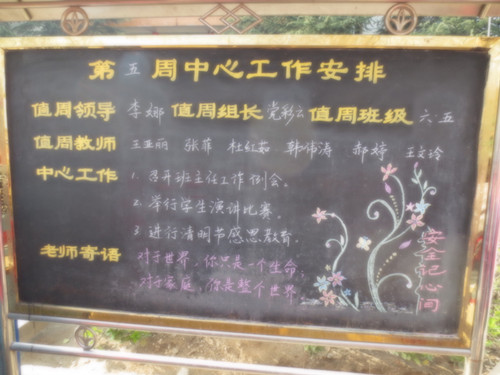 第五周中心工作安排
值周领导 李娜 值周组长 党彩云 值周班级 六.五
值周教师 王亚丽 张菲 杜红茹 韩伟涛 郝婷 王文玲
中心工作 1.召开班主任工作例会。
2.举行学生演讲比赛。
3.进行清明节感恩教育。
老师寄语 对于世界,你只是一个生命,
对于家庭,你是整个世界
安全记心间